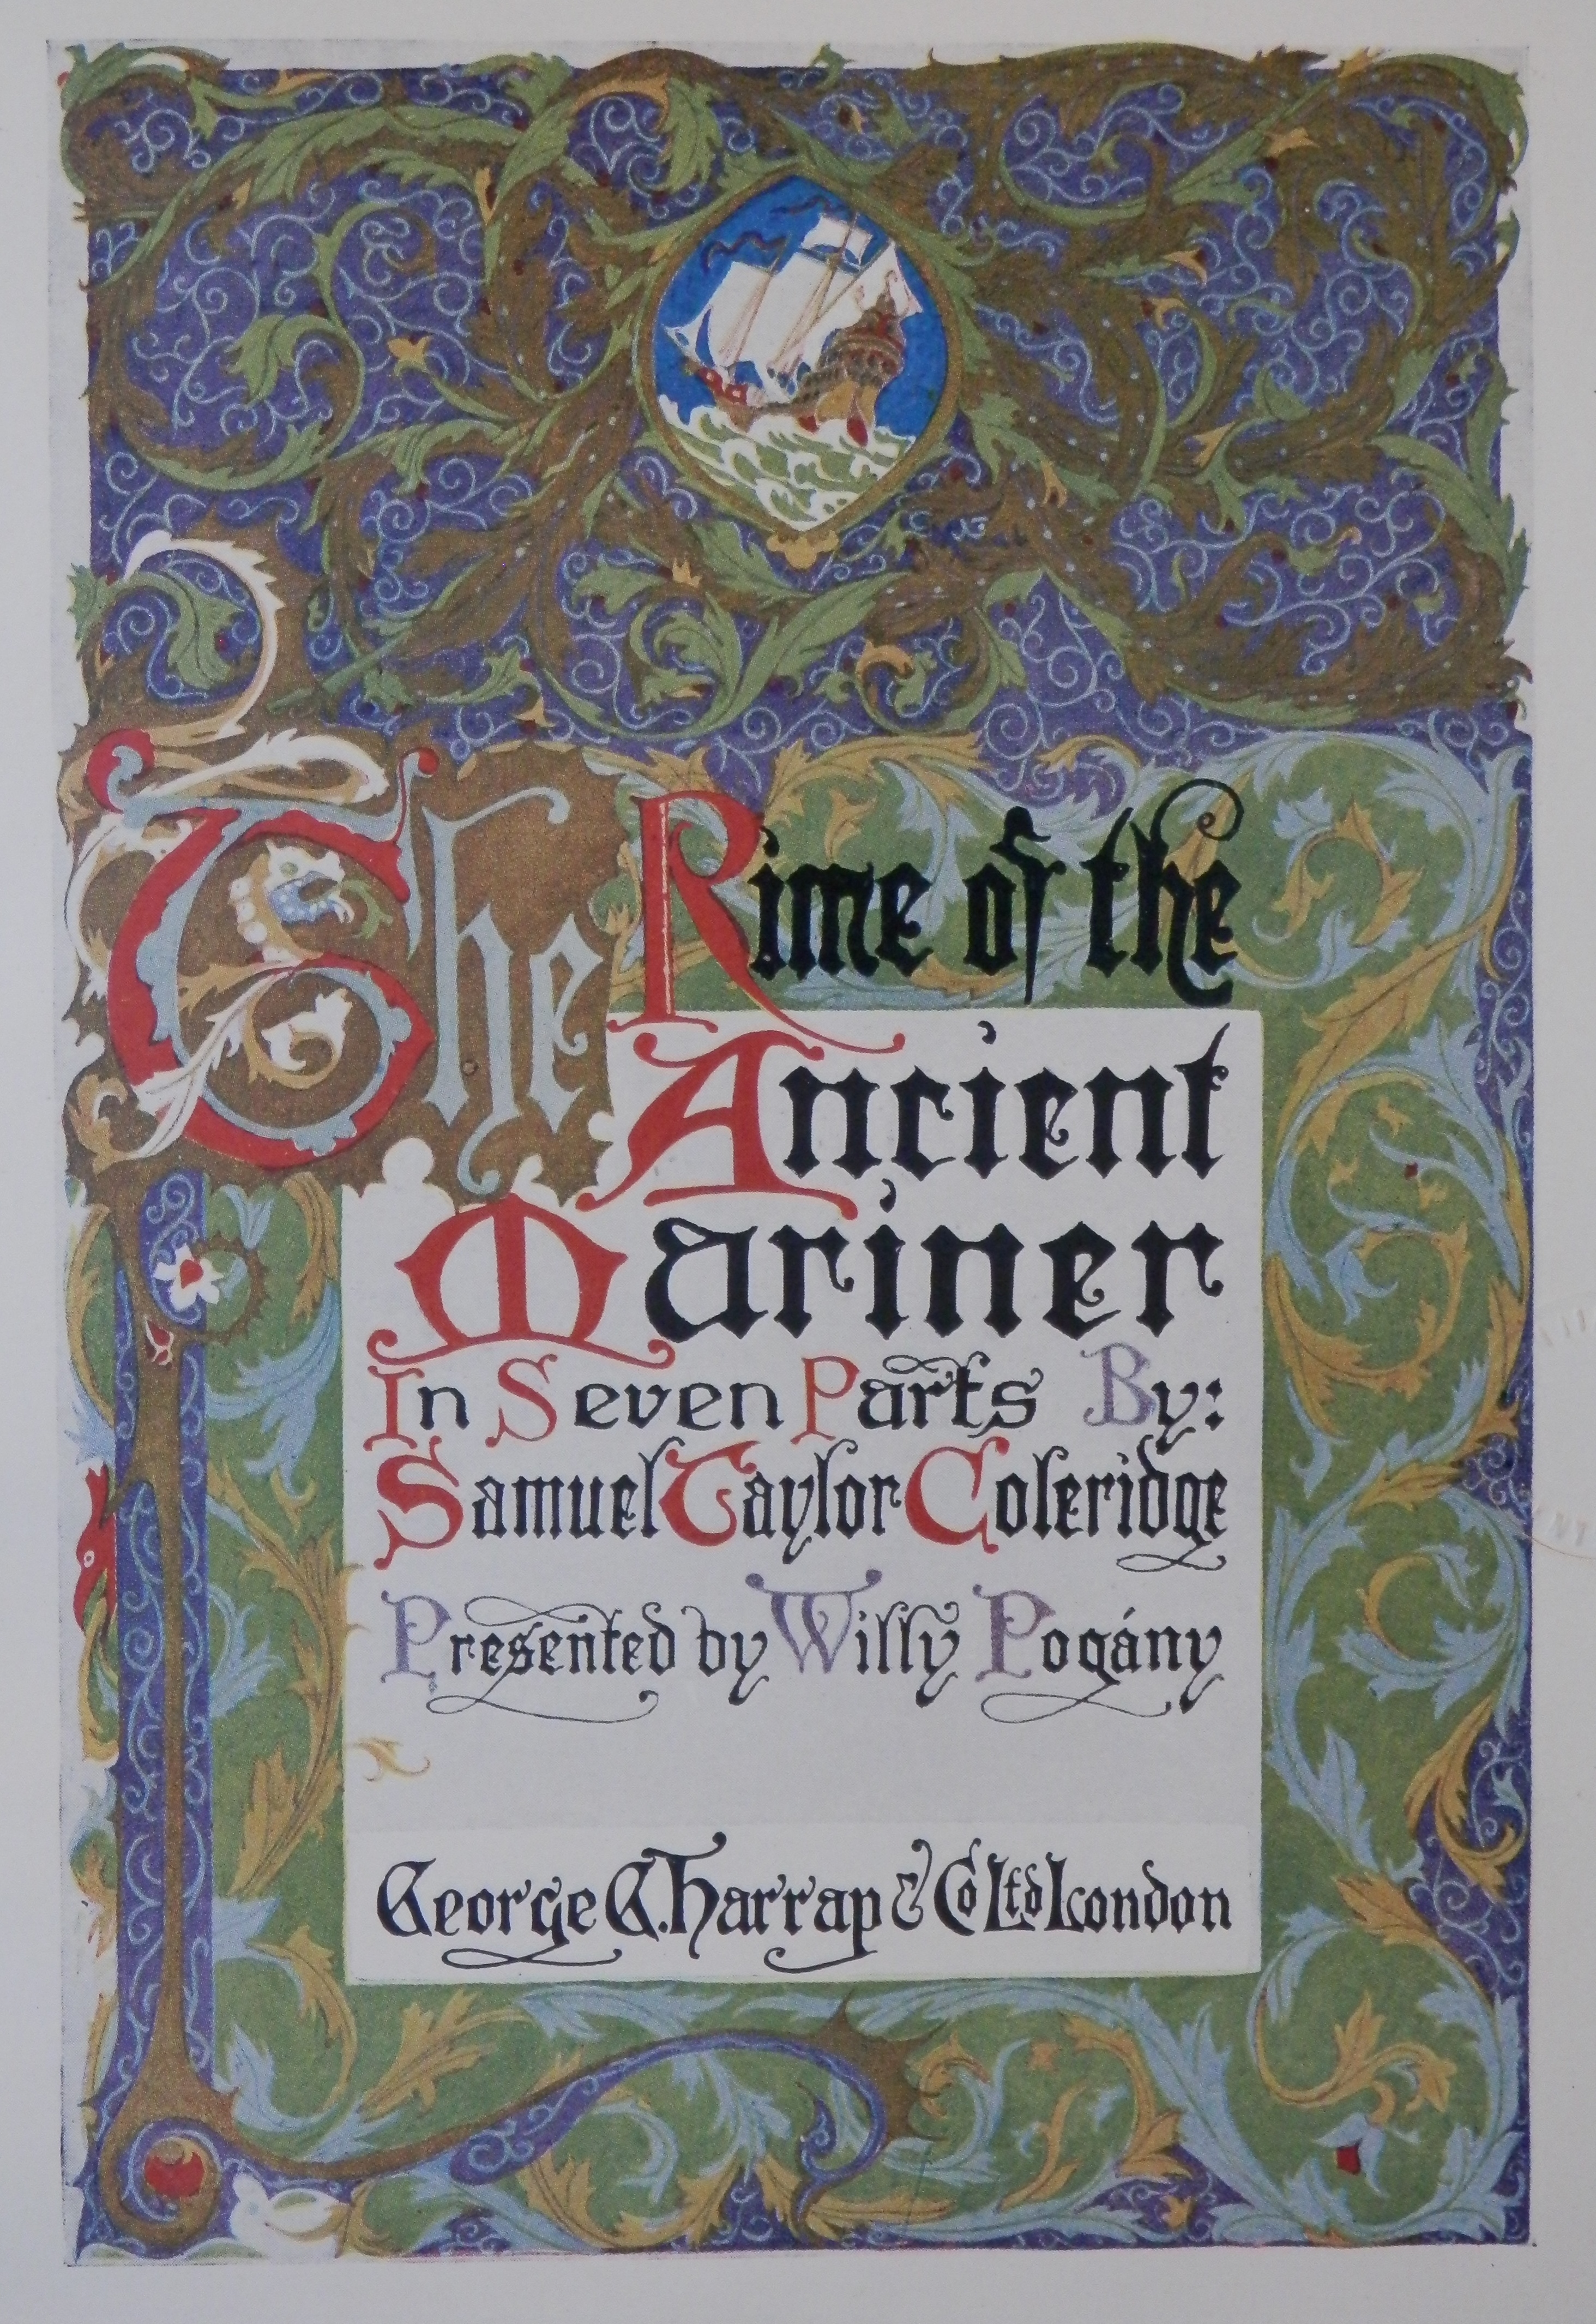 The Rime of the
Ancient
Mariner
In Seven Parts By:
Samuel Taylor Coleridge
Presented by Willy Pogány
George G. Harrap & Co Ltd London